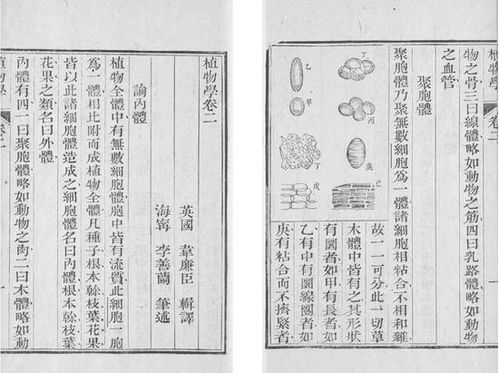 植物學卷二
英國 韋廉臣 輯譯
海寧 李善蘭 筆述
論內體
植物全體中有無數細胞體胞中皆有流質此細胞一胞
為一體相比附而成植物全體凡種子根本榦枝葉花果
皆以此諸細胞體造成之細胞體名曰內體根本榦枝葉
花果之類名曰外體
內體有四一曰聚胞體略如動物之肉二曰木體略如動
植物學 卷二
植物學 卷二 一
物之骨三曰線體略如動物之筋四曰乳路體略如動物
之血管
聚胞體
聚胞體乃聚無數細胞為一體諸細胞相粘合不相和雜
丁
乙
丙
甲
庚
丁
己
戊
故一一可分此一切草
木體中皆有之其形狀
有圜者如甲有長者如
乙有中有圜線圈者如
庚有粘合而不擠緊者